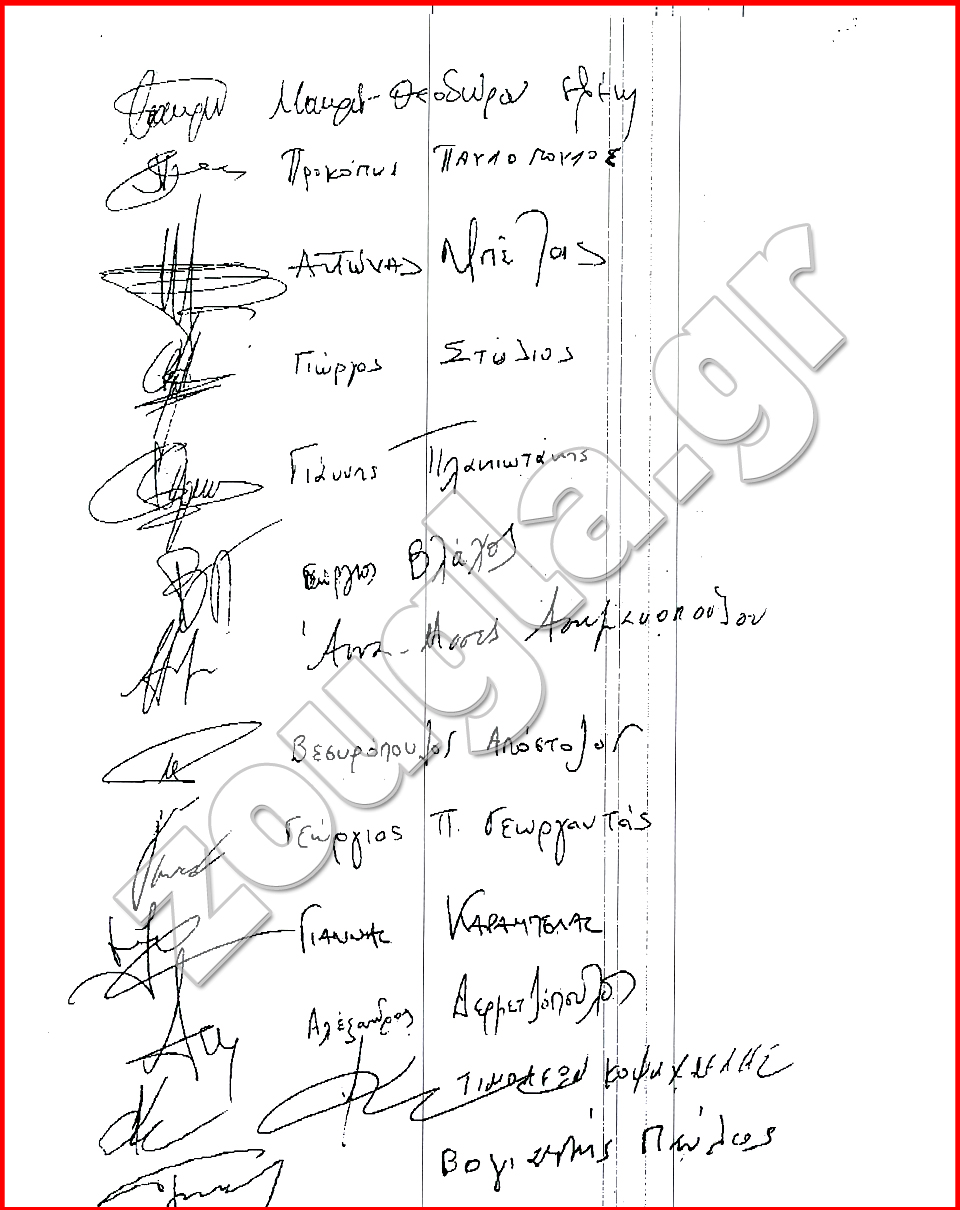 Μακρή-Θεοδώρου Ελένη
Προκόπης Παυλόπουλος
Αντώνης Μπέζας
Γιώργος Στύλιος
Γιάννης Πλακιωτάκης
Γεώργιος Βλάχος
Άννα-Μισέλ Ασημακοπούλου
Βεσυρόπουλος Απόστολος
Γεώργιος Π. Γεωργαντάς
ΓΙΑΝΝΗΣ ΚΑΡΑΜΠΕΛΑΣ
Αλέξανδρος Δερμετζόπουλος
ΤΙΜΟΛΕΩΝ ΚΟΨΑΧΕΙΛΗΣ
Βογιατζής Παύλος
zougla.gr